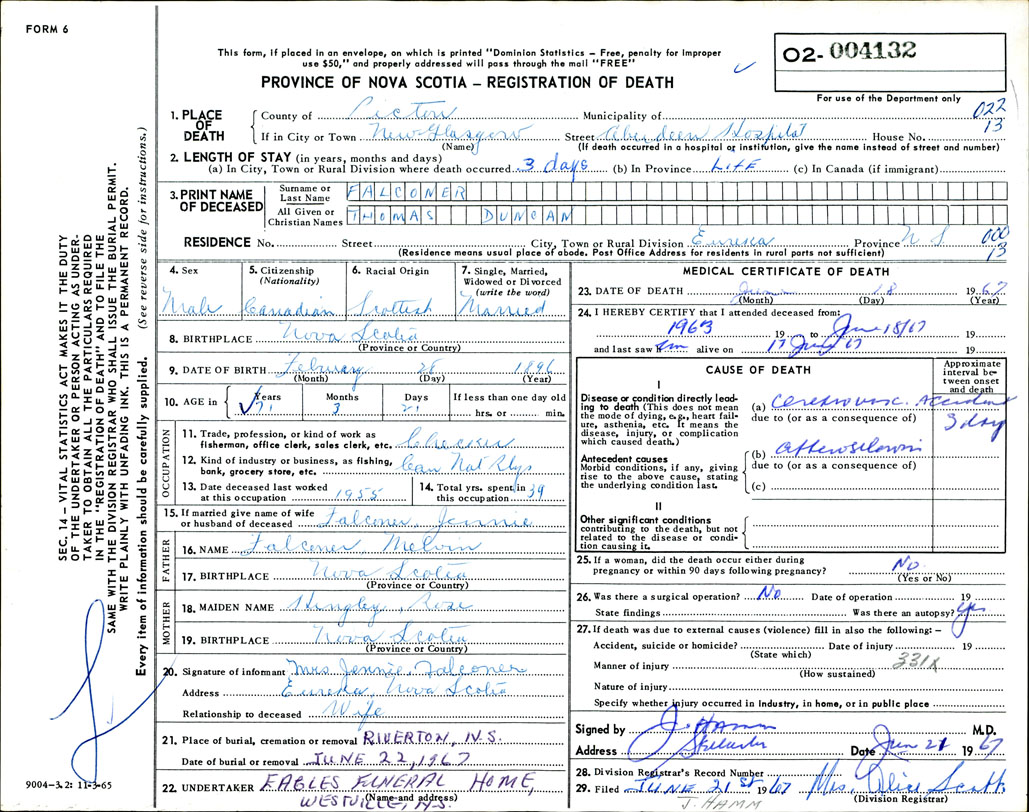 FORM 6
This form, if placed in an envelope, on which is printed "Dominion Statistics – Free, penalty for improper
use $50," and properly addressed will pass through the mail "FREE"
PROVINCE OF NOVA SCOTIA – REGISTRATION OF DEATH
O2- 004132
For use of the Department only
022
13
1. PLACE OF DEATH
County of Pictou Municipality of
If in City or Town New Glasgow Street Aberdeen Hospital House No.
(Name) (If death occurred in a hospital or institution, give the name instead of street and number)
2. LENGTH OF STAY (in years, months and days)
(a) In City, Town or Rural Division where death occurred 3 days (b) In Province LIFE (c) In Canada (if immigrant)
3. PRINT NAME OF DECEASED
Surname or Last Name FALCONER
All Given or Christian Names THOMAS DUNCAN
RESIDENCE No. Street City, Town or Rural Division Eureka Province N S
000
13
(Residence means usual place of abode. Post Office Address for residents in rural parts not sufficient)
4. Sex
Male
5. Citizenship (Nationality)
Canadian
6. Racial Origin
Scottish
7. Single, Married, Widowed or Divorced (write the word)
Married
8. BIRTHPLACE Nova Scotia
(Province or Country)
9. DATE OF BIRTH February 28 1896
(Month) (Day) (Year)
10. AGE in Years 71 Months 3 Days 21 If less than one day old hrs. or min.
OCCUPATION
11. Trade, profession, or kind of work as fisherman, office clerk, sales clerk, etc.
12. Kind of industry or business, as fishing, bank, grocery store, etc. Can Nat Rlys
13. Date deceased last worked at this occupation 1955
14. Total yrs. spent in this occupation 39
15. If married give name of wife or husband of deceased Falconer, Jennie
FATHER
16. NAME Falconer Melvin
17. BIRTHPLACE Nova Scotia
(Province or Country)
MOTHER
18. MAIDEN NAME Hingley, Rose
19. BIRTHPLACE Nova Scotia
(Province or Country)
20. Signature of informant Mrs Jennie Falconer
Address Eureka, Nova Scotia
Relationship to deceased Wife
21. Place of burial, cremation or removal RIVERTON, N.S.
Date of burial or removal JUNE 22, 1967
22. UNDERTAKER EAGLES FUNERAL HOME,
WESTVILLE, N.S.
(Name and address)
MEDICAL CERTIFICATE OF DEATH
23. DATE OF DEATH June 18 1967
(Month) (Day) (Year)
24. I HEREBY CERTIFY that I attended deceased from:
1963 19 to June 18/67 19
and last saw him alive on 17 June 67 19
CAUSE OF DEATH
Approximate interval between onset and death
I
Disease or condition directly leading to death (This does not mean the mode of dying, e.g., heart failure, asthenia, etc. It means the disease, injury, or complication which caused death.)
(a) Cerebrovasc. Accident
3 day
due to (or as a consequence of)
Antecedent causes
Morbid conditions, if any, giving rise to the above cause, stating the underlying condition last.
(b)
due to (or as a consequence of)
(c)
II
Other significant conditions
contributing to the death, but not related to the disease or condition causing it.
25. If a woman, did the death occur either during
pregnancy or within 90 days following pregnancy? No
(Yes or No)
26. Was there a surgical operation? No Date of operation 19
State findings Was there an autopsy? Yes
27. If death was due to external causes (violence) fill in also the following: –
Accident, suicide or homicide? Date of injury 19
(State which)
331X
Manner of injury
(How sustained)
Nature of injury
Specify whether injury occurred in industry, in home, or in public place
Signed by J. HAMM M.D.
Address Date Jun 21 1967
28. Division Registrar's Record Number
29. Filed JUNE 21st 1967 Mrs. Alice Scott
(Division Registrar)
J. HAMM
SEC. 14 – VITAL STATISTICS ACT MAKES IT THE DUTY
OF THE UNDERTAKER OR PERSON ACTING AS UNDER-
TAKER TO OBTAIN ALL THE PARTICULARS REQUIRED
IN THE "REGISTRATION OF DEATH" AND TO FILE THE
SAME WITH THE DIVISION REGISTRAR WHO SHALL ISSUE THE BURIAL PERMIT.
WRITE PLAINLY WITH UNFADING INK. THIS IS A PERMANENT RECORD.
Every item of information should be carefully supplied. (See reverse side for instructions.)
9004-3.2: 11-3-65